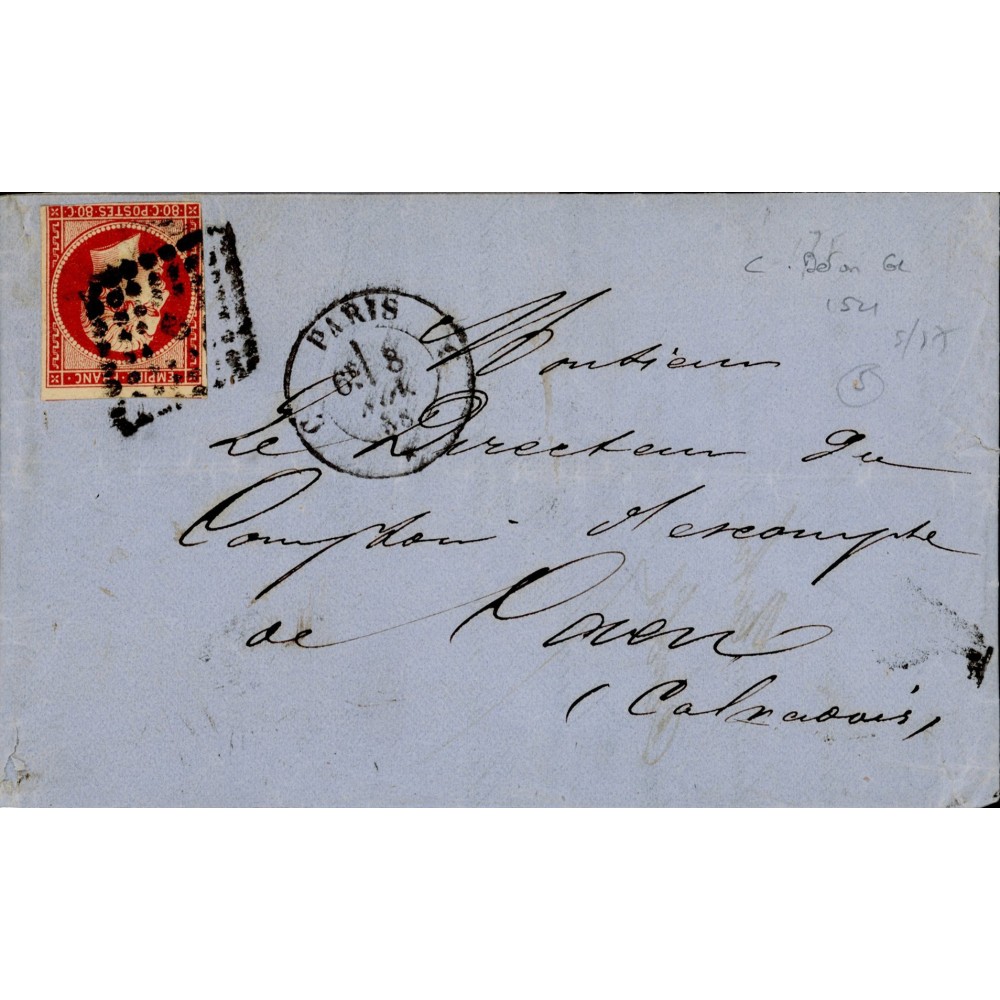 80·C·POSTES·80·C
EMPIRE FRANC
PARIS
8
58
Monsieur
Le Directeur du
Comptoir d'escompte
de Caen
(Calvados)
154
5/17